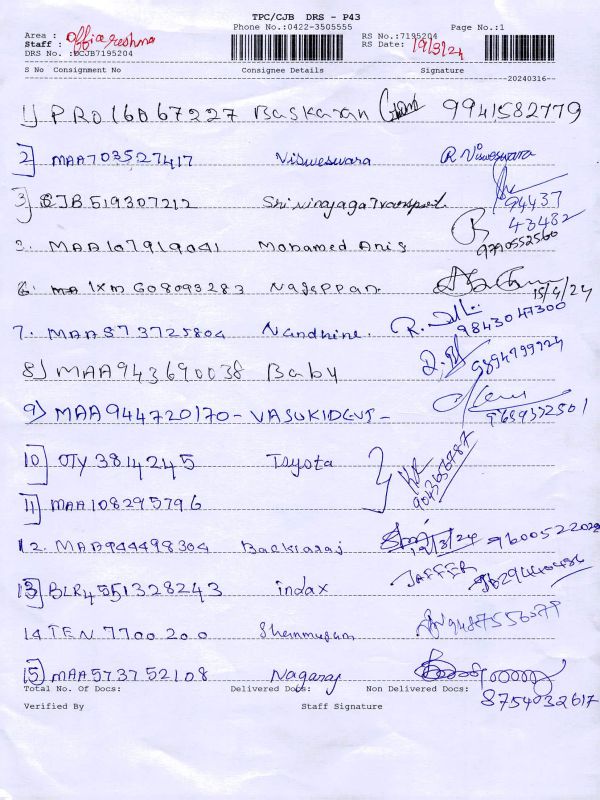 TPC/CJB DRS - P43
Phone No.:0422-3505555 Page No.:1
Area : Office
Staff : reshma RS No.:7195204
DRS No. :BCJB7195204 RS Date: 19/3/24
S No Consignment No Consignee Details Signature
20240316
1) PRO16067227 Baskaran 9941582779
2] MAA703527417 Visweswara R Visweswara
3] CJB519307212 Sri Vinayaga Transport 94437 43482
5. MAA107919041 Mohamed Anis 9790552560
6. IXM608093283 Nagappan 15/4/24
7. MAA573725804 Nandhine. 9843047300
8) MAA943690038 Baby 9894799924
9) MAA944720170 - VASUKIDEVI - 9659332501
10] OTY3814245 Toyota 9043656787
11] MAA108295796
12. MAA944498304 Backiaraj 19/3/24 9600522029
13] BLR4551328243 indax JAFFER
14 TEN 7700200 Shanmugam
15] MAA573752108 Nagaraj
Total No. Of Docs: Delivered Docs: Non Delivered Docs:
8754032617
Verified By Staff Signature